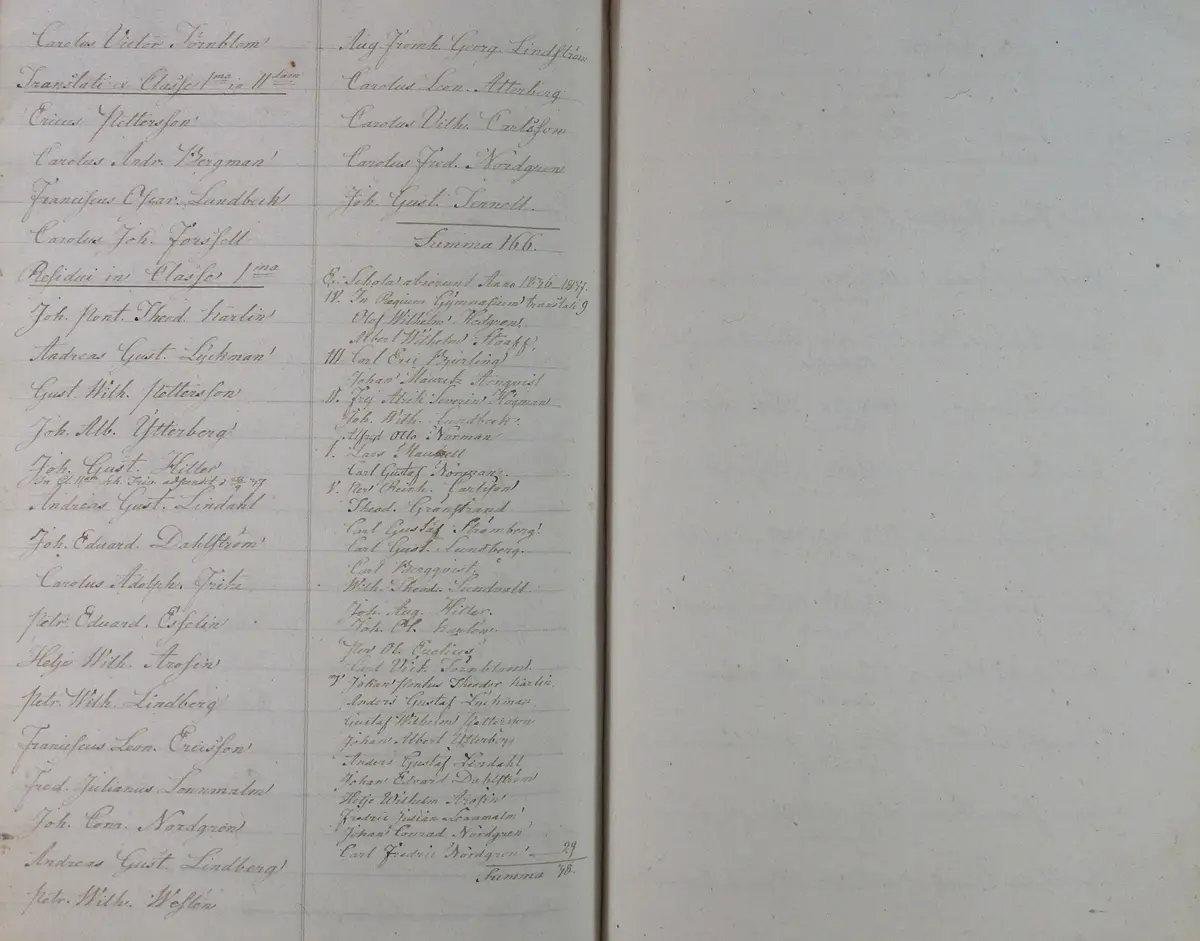 Carolus Victor Törnblom
Translati e Classe 1ma in IIdam
Ericus Pettersson
Carolus Andr. Bergman
Franciscus Oscar. Lundbeck
Carolus Joh. Forssell
Residui in Classe 1ma
Joh. Pont. Theod. Karlin
Andreas Gust. Lyckman
Gust. Wilh. Pettersson
Joh. Alb. Ytterberg
Joh. Gust. Hiller
Andreas Gust. Lindahl
Joh. Eduard. Dahlström
Carolus Adolph. Fritz
Petr. Eduard. Esselin
Helje Wilh. Arosin
Petr. Wilh. Lindberg
Franciscus Leon. Ericsson
Fred. Julianus Lennmalm
Joh. Conr. Nordgren
Andreas Gust. Lindberg
Petr. Wilh. Weslén
Aug. Fromh. Georg. Lindström
Carolus Leon. Atterberg
Carolus Vilh. Carlsson
Carolus Fred. Nordgren
Joh. Gust. Tennell.
Summa 166.
E. Schola abierunt Anno 1836-1837.
IV. In Regium Gymnasium translati 9
Olof Wilhelm Hedgren.
Albert Wilhelm Staaff.
III Carl Eric Byrling
Johan Mauritz Aronqvist
IV. Frej Alrik Severin Högman
Joh. Wilh. Lundbeck.
Alfred Otto Norman
1. Lars
Carl Gustaf Norman.
V. Per Reinh. Carlsson
Theod. Grönstrand
Carl Gustaf Strömberg.
Carl Gust. Lundberg.
Carl Bergqvist.
Wilh. Theod. Sundvall
Joh. Aug. Hiller.
Joh. Ol.
Per Ol.
Carl Vict. Törnblom.
Johan Pontus Theodor Karlin.
Anders Gustaf Lyckman
Gustaf Wilhelm Pettersson
Johan Albert Ytterberg
Anders Gustaf Lindahl
Johan Edvard Dahlström
Helje Wilhelm Arosin
Fredric Julian Lennmalm
Johan Conrad Nordgren
Carl Fredric Nordgren 29
Summa 48.